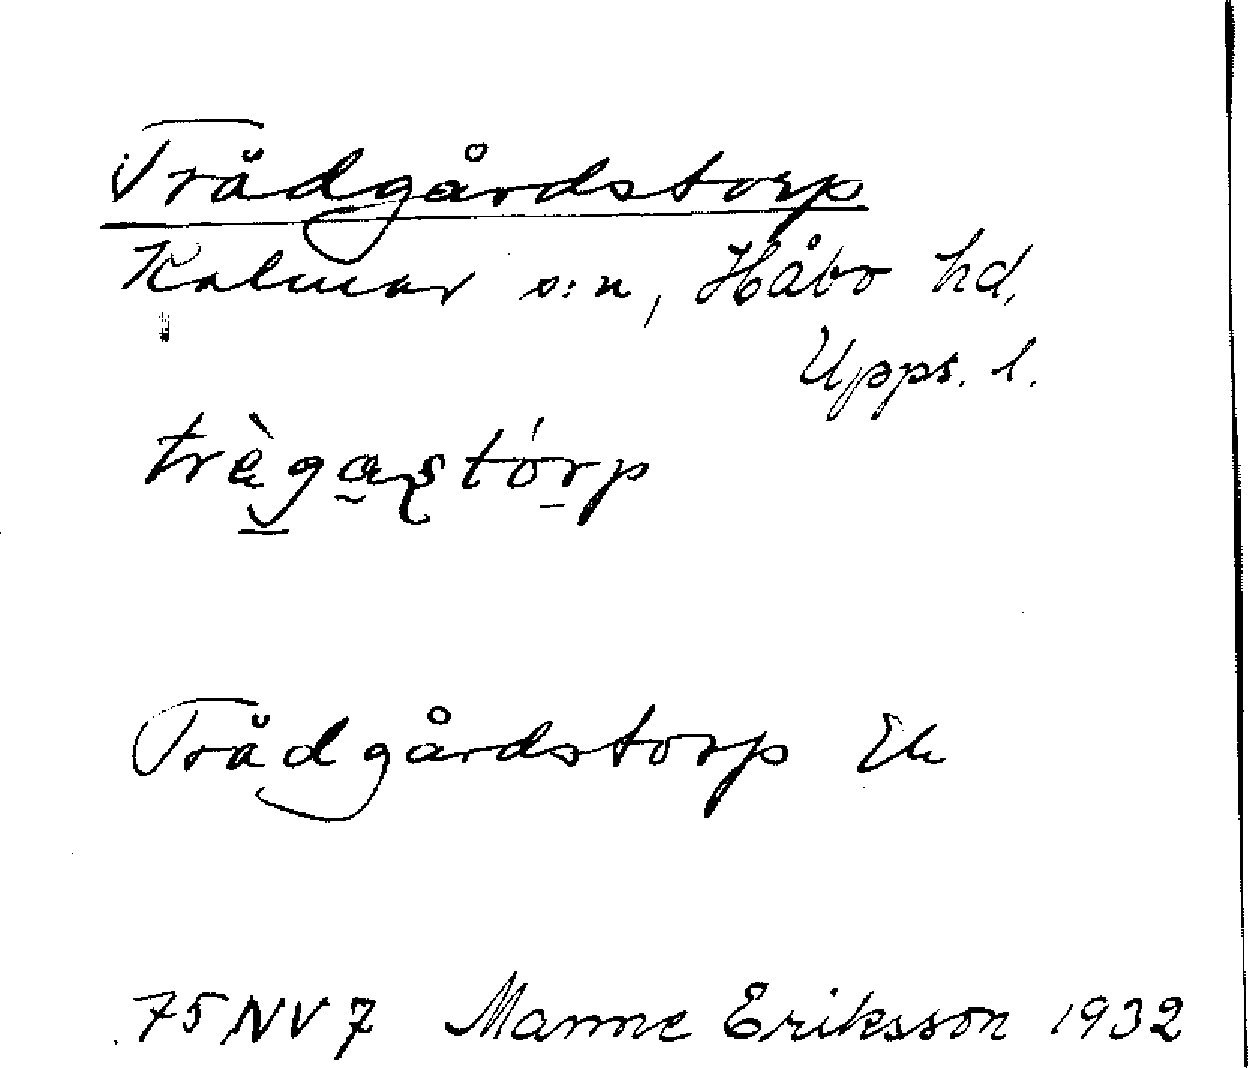 Trädgårdstorp
Kalmar s:n, Håbo hd,
Upps. l.
trègastórp
Trädgårdstorp Ek
75 NV 7 Manne Eriksson 1932